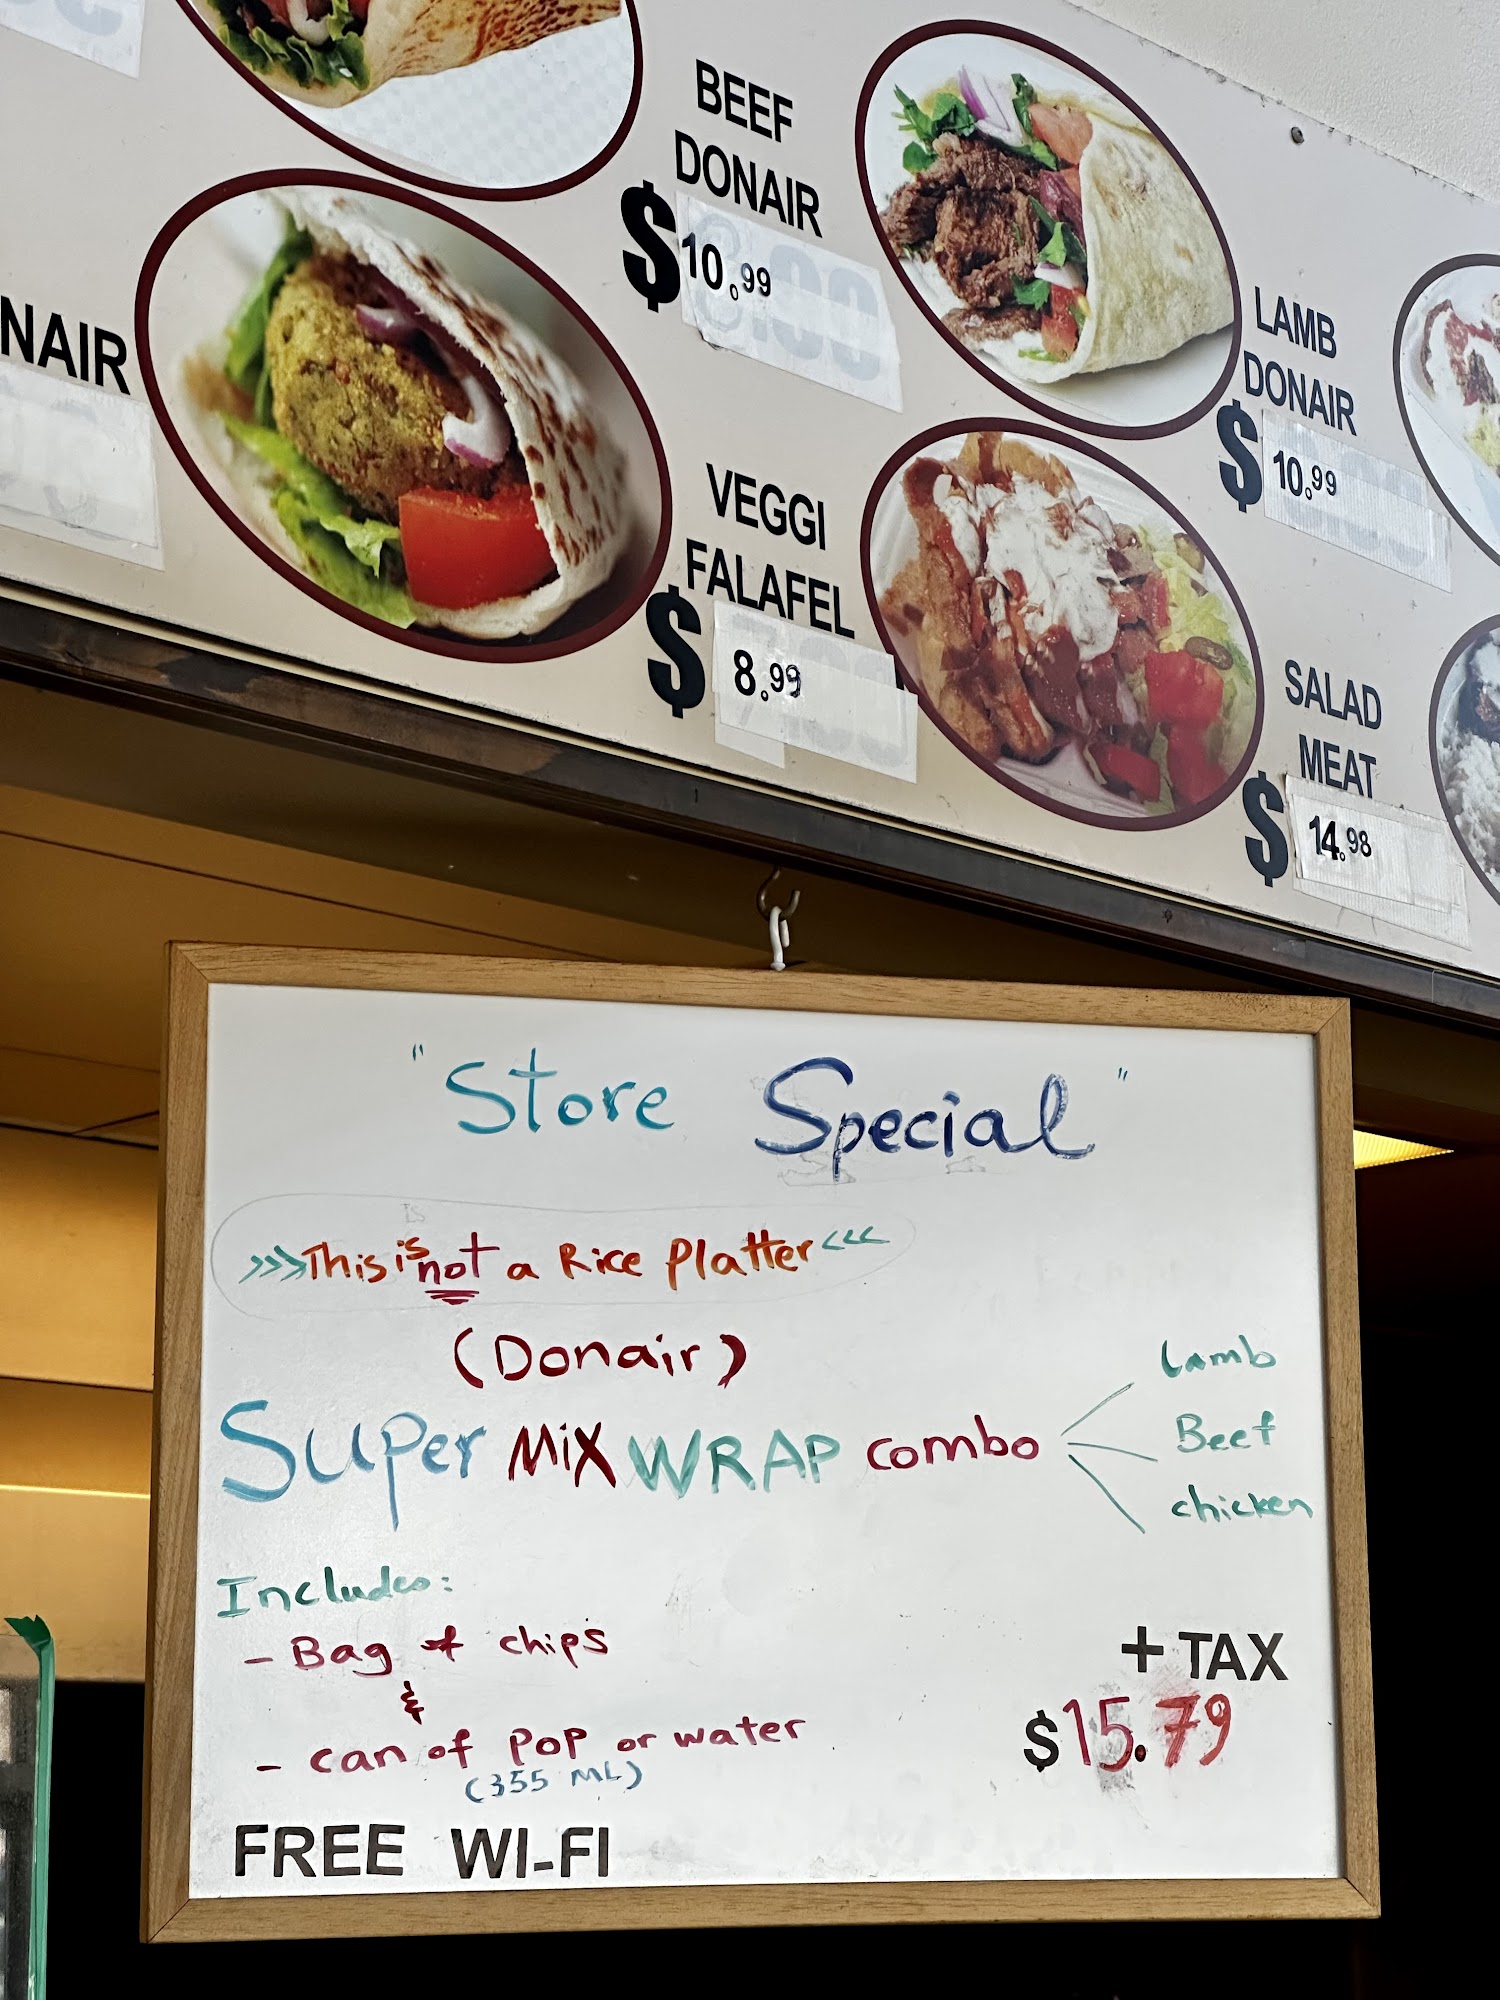 BEEF
DONAIR
$10.99
LAMB
DONAIR
$10.99
NAIR
VEGGI
FALAFEL
$8.99
SALAD
MEAT
$14.98
"Store Special"
>>>This is not a Rice Platter<<<
(Donair)
Super MiX WRAP combo
Lamb
Beef
chicken
Includes:
- Bag of chips
&
- can of pop or water
(355 ML)
+ TAX
$15.79
FREE WI-FI